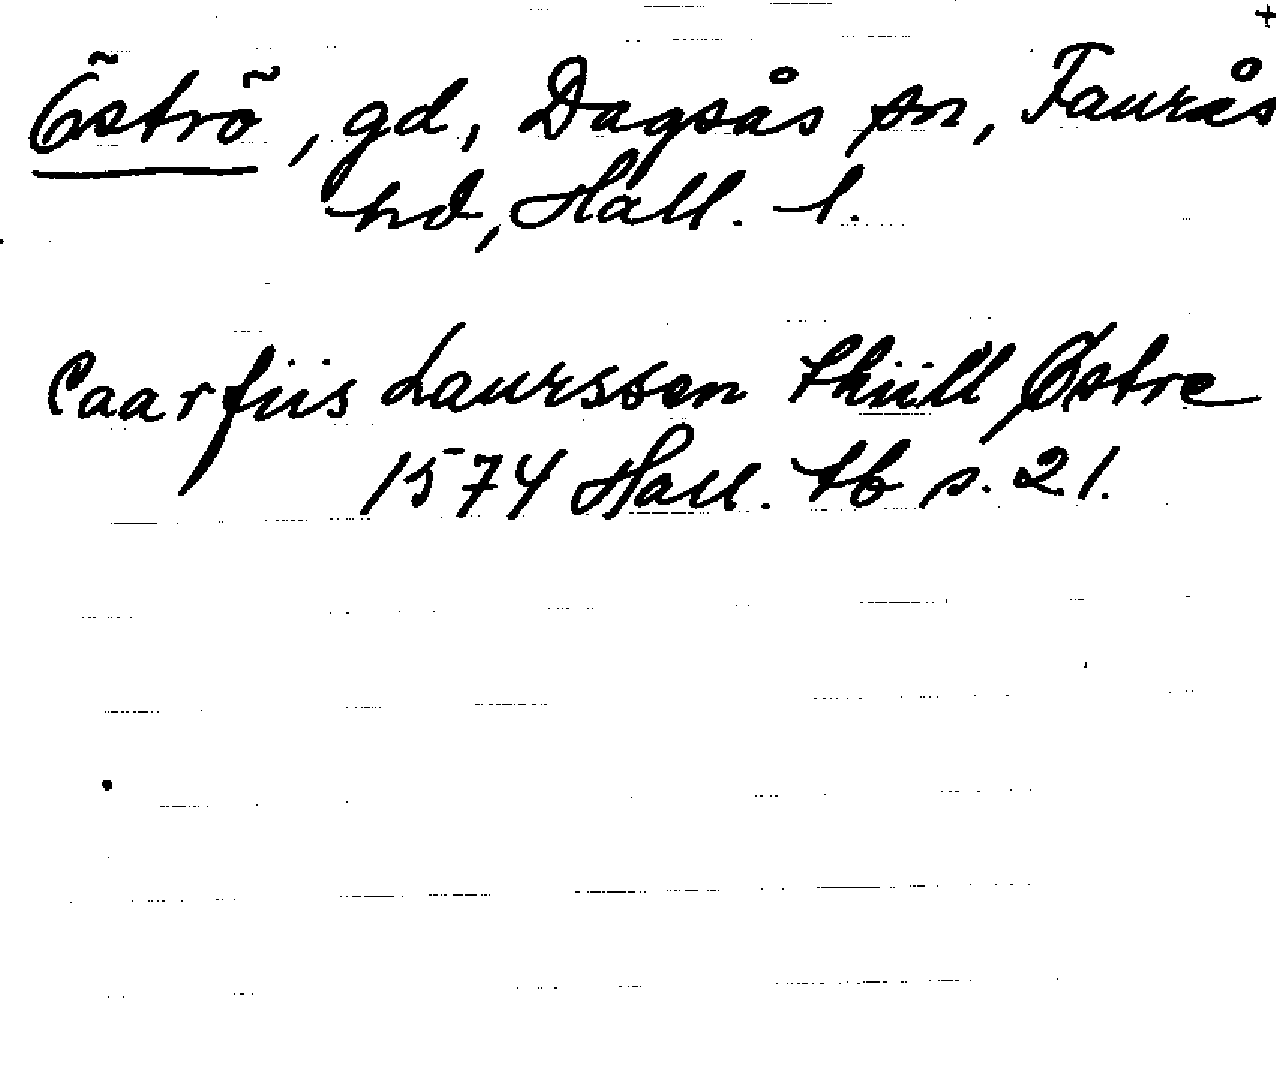 +
Öströ, gd, Dagsås sn, Faurås
hd, Hall. l.
Caarfüs Laurssen thüll Østre
1574 Hall. tb s. 21.